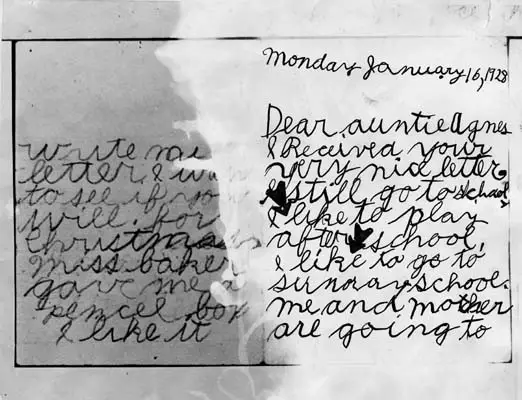 Monday January 16, 1928
Dear auntie Agnes
I Received your
very nice letter,
I still go to school
I like to play
after school,
I like to go to
sunday school.
me and mother
are going to
write mi
letter. I
to see if you
will. for
christmas
miss baker
gave me a
pencel box
I like it